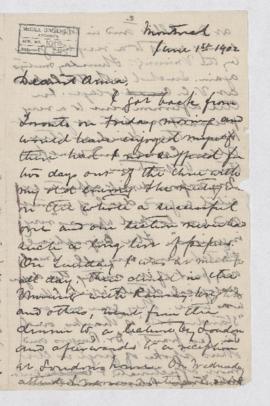 McGILL UNIVERSITY
ARCHIVES
ACC. NO.
REF.
3
Montreal
June 1st 1902
Dearest Anna
I got back from
Toronto on Friday morning and
would have enjoyed myself
there had I not suffered for
two days out of the time with
my old enemy. The meeting
on the whole a successful
one and our section received
quite a long list of papers.
On Tuesday I was at meetings
all day, then dined in the
evening with Ramsay Wright
and others, went from the
dinner to a lecture by Loudon
and afterwards to a reception
at Loudon's house. On Wednesday
attended